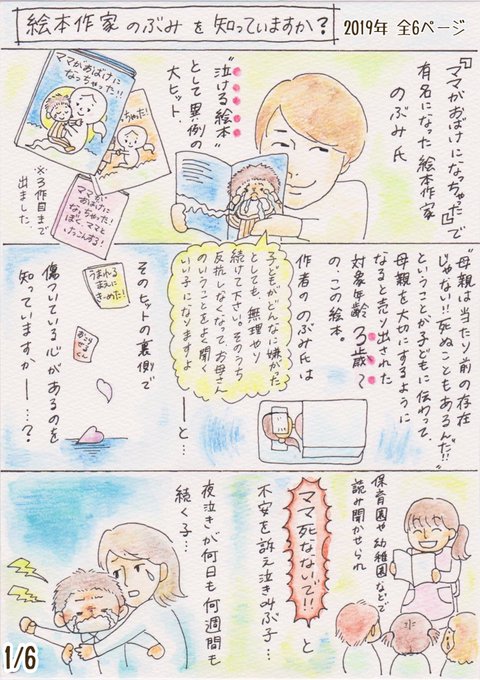 絵本作家 のぶみ を 知っていますか?
2019年 全6ページ
『ママがおばけになっちゃった!』で
有名になった 絵本作家
のぶみ 氏
"泣ける絵本"
として 異例の
大ヒット.
ママがおばけに
なっちゃった!!
ちゃった!
ママが
おばけに
なっちゃった!
ぼく、ママと
けっこんする!
※3作目まで
出ました.
"母親は当たり前の存在
じゃない!!死ぬこともあるんだ!!"
ということが子どもに伝わって、
母親を大切にするように
なると売り出された
対象年齢 3歳〜
の、この絵本。
作者の のぶみ 氏は
子どもがどんなに嫌がった
としても、無理やり
続けて下さい。そのうち
反抗しなくなってお母さん
のいうことをよく聞く
いい子になりますよ
ーーと…
そのヒットの裏側で
傷ついている心があるのを
知っていますかーー…?
うまれる
まえに
きーめた!
保育園や幼稚園などで
読み聞かせられ
ママ死なないで!!
と
不安を訴え泣き叫ぶ子…
夜泣きが何日も何週間も
続く子…
1/6